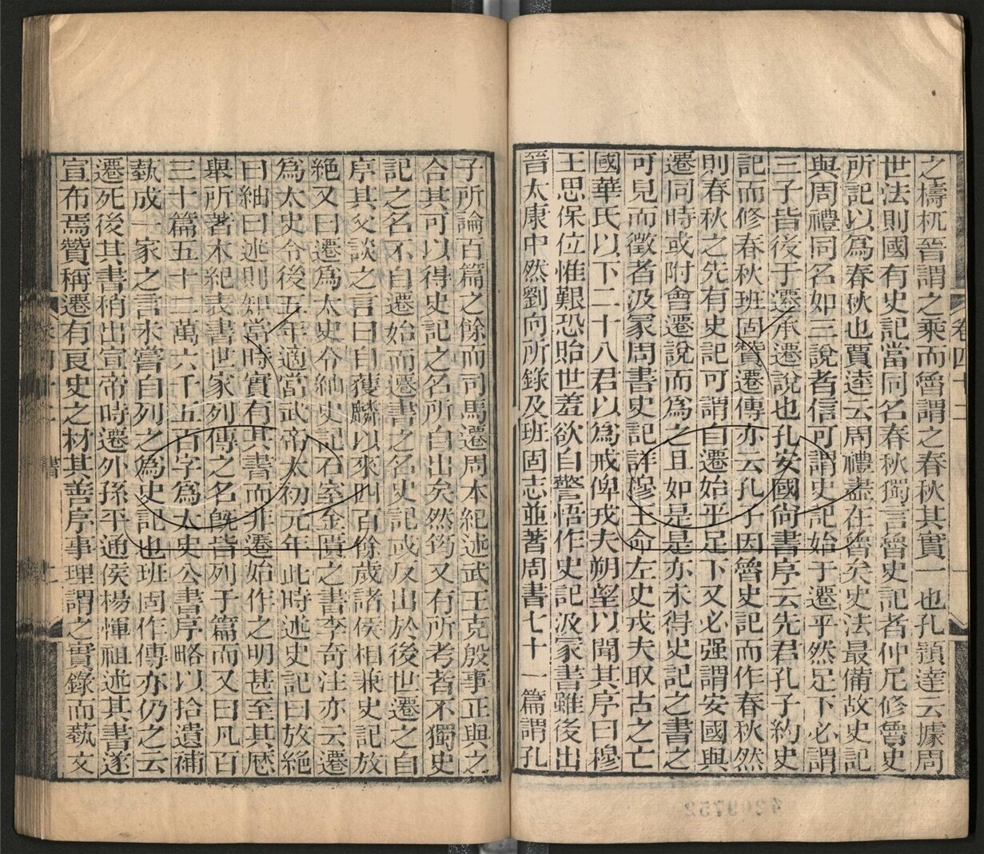 之檮杌晉謂之乘而魯謂之春秋其實一也孔頴達云據周
世法則國有史記當同名春秋獨言魯史記者仲尼修魯史
所記以爲春秋也賈逵云周禮盡在魯矣史法最備故史記
與周禮同名如三說者信可謂史記始于遷乎然足下必謂
三子皆後于遷承遷說也孔安國尙書序云先君孔子約史
記而修春秋班固贊遷傳亦云孔子因魯史記而作春秋然
則春秋之先有史記可謂自遷始乎足下又必强謂安國與
遷同時或附會遷說而爲之且如是是亦未得史記之書之
可見而徵者汲冢周書史記詳穆王命左史戎夫取古之亡
國華氏以下二十八君以爲戒俾戎夫朔望以聞其序曰穆
王思保位惟艱恐貽世羞欲自警悟作史記汲冢書雖後出
晉太康中然劉向所錄及班固志並著周書七十一篇謂孔
卷四十二
子所論百篇之餘而司馬遷周本紀述武王克殷事正與之
合其可以得史記之名所自出矣然筠又有所考者不獨史
記之名不自遷始而遷書之名史記或反出於後世遷之自
序其父談之言曰自獲麟以來四百餘歲諸侯相兼史記放
絶又曰遷爲太史令紬史記石室金匱之書李奇注亦云遷
爲太史令後五年適當武帝太初元年此時述史記曰放絕
曰紬曰述則知當時實有其書而非遷始作之明甚至其歷
舉所著本紀表書世家列傳之名旣皆列于篇而又曰凡百
三十篇五十二萬六千五百字爲太史公書序略以拾遺補
蓺成一家之言未嘗自列之爲史記也班固作傳亦仍之云
遷死後其書稍出宣帝時遷外孫平通侯楊惲祖述其書遂
宣布焉贊稱遷有良史之材其善序事理謂之實錄而蓺文
4209752